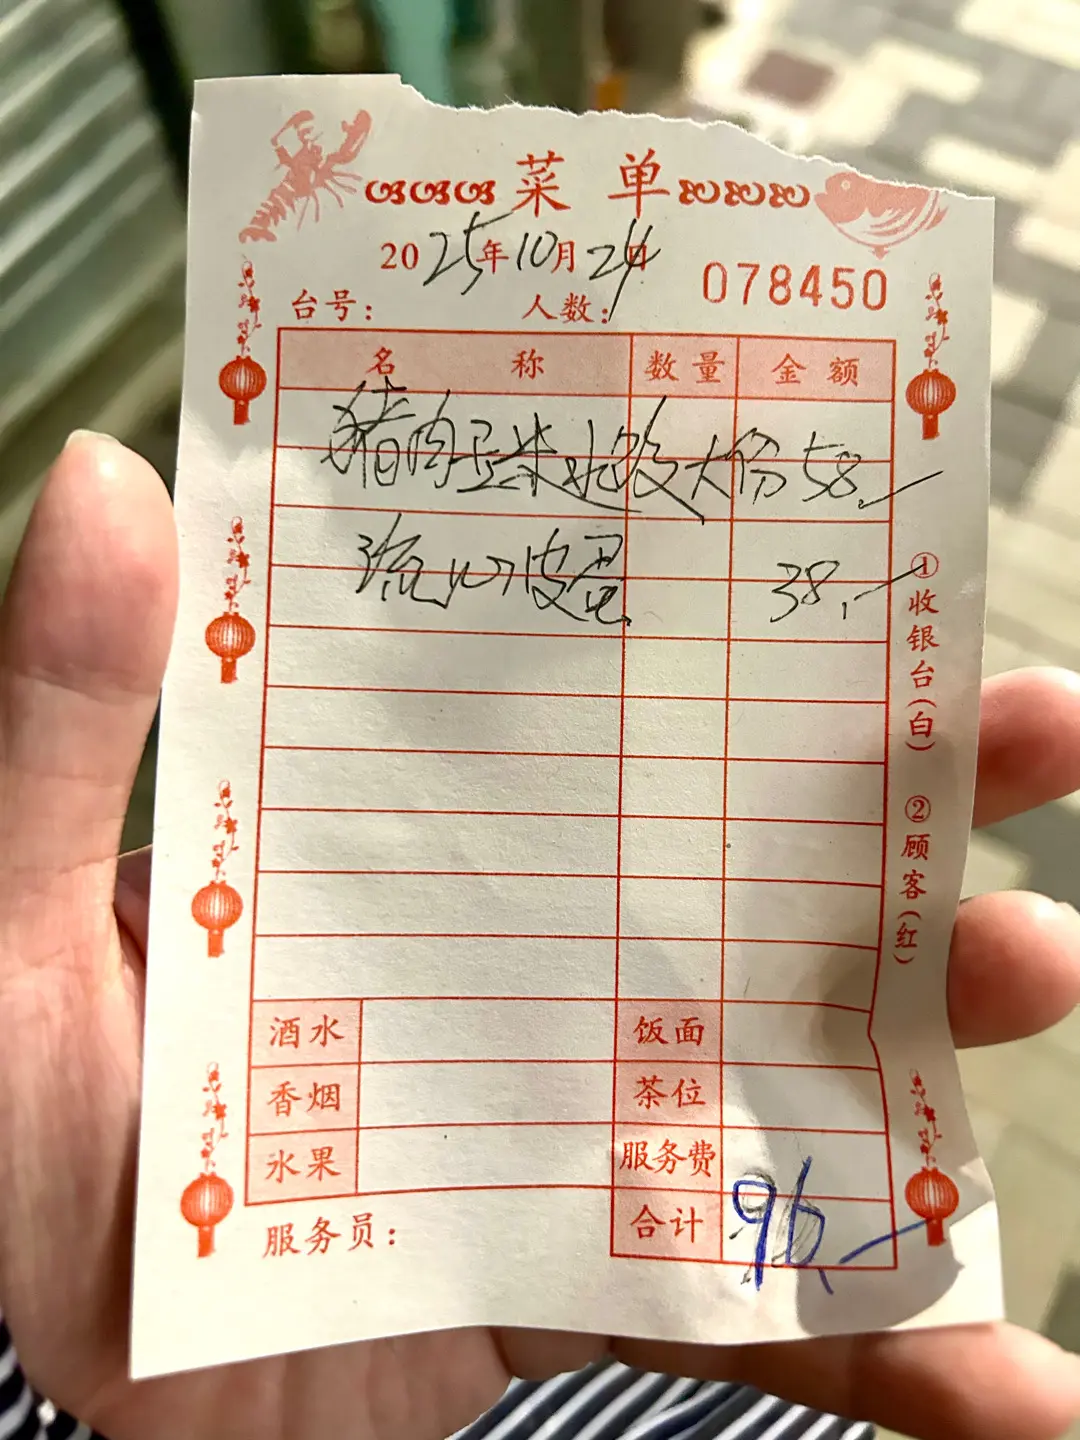 菜单
2025年10月24日
078450
台号：
人数：
名称 数量 金额
猪肉 大份 58
流心皮蛋 38
①收银台（白） ②顾客（红）
酒水 饭面
香烟 茶位
水果 服务费
合计 96
服务员：